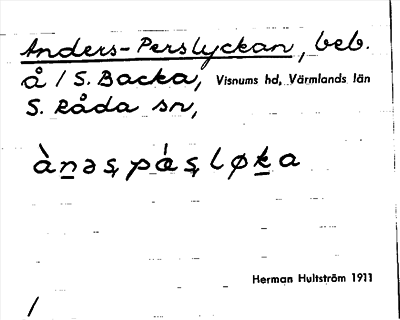 Anders-Perslyckan, beb.
å / S. Backa, Visnums hd, Värmlands län
S. Råda sn,
ànəʂpáʂløka
Herman Hultström 1911
/